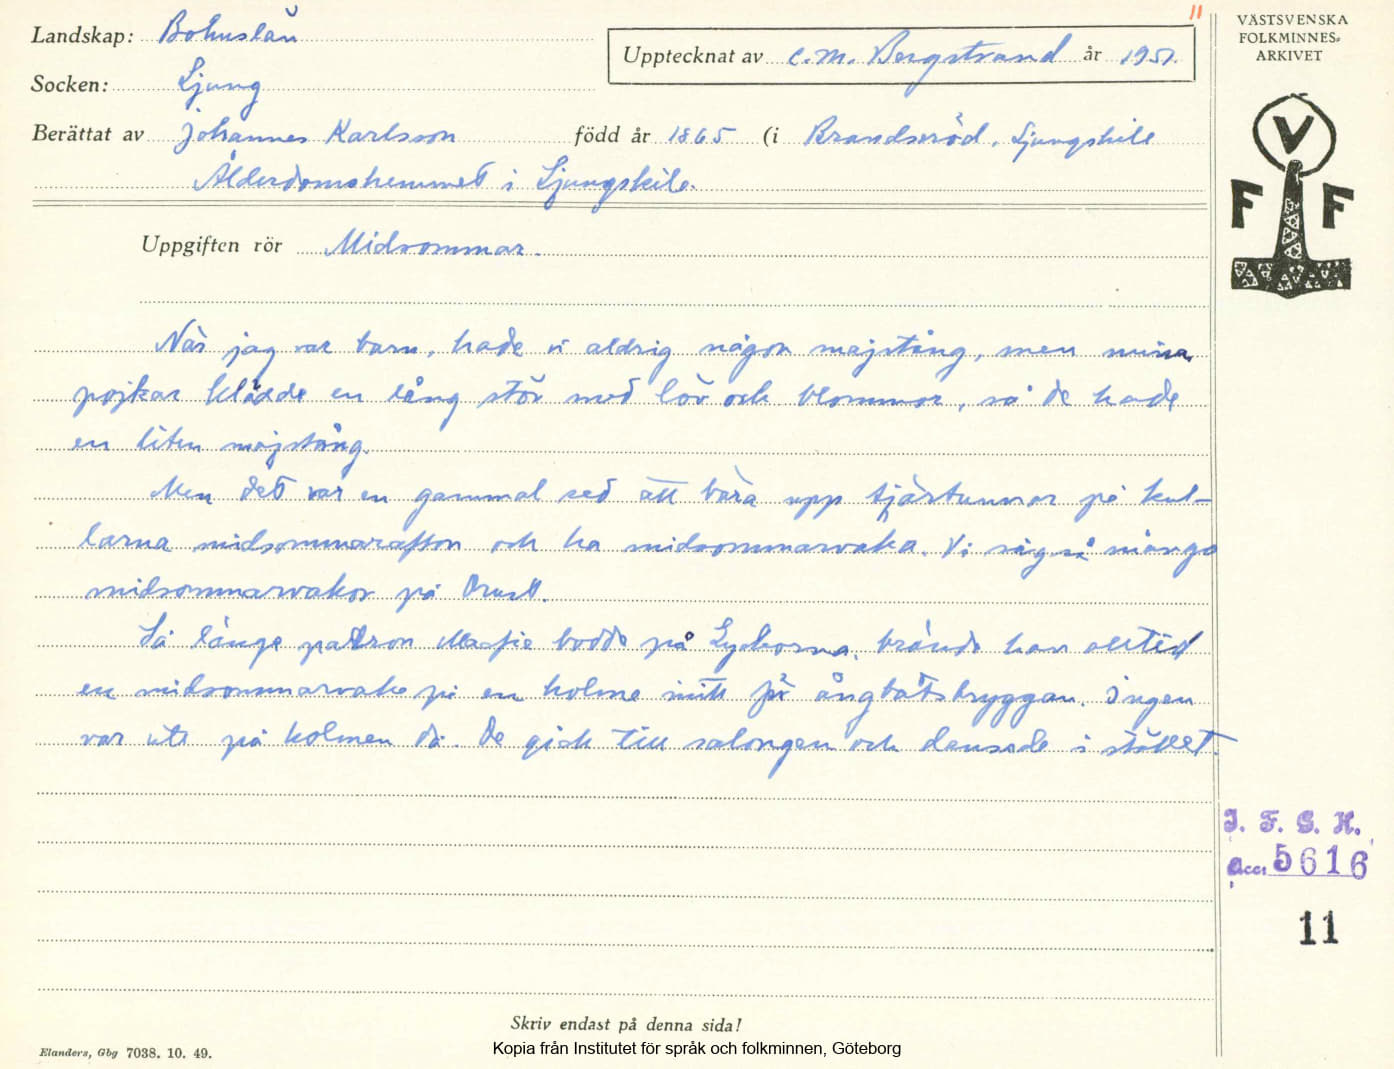 11
Landskap: Bohuslän
Upptecknat av C. M. Bergstrand år 1951.
VÄSTSVENSKA
FOLKMINNES-
ARKIVET
Socken: Ljung
Berättat av Johannes Karlsson född år 1865 (i Brandseröd, Ljungskile
Ålderdomshemmet i Ljungskile.
V
F F
Uppgiften rör Midsommar.
När jag var barn, hade vi aldrig någon majstång, men mina
pojkar klädde en lång stör med löv och blommor, så de hade
en liten majstång.
Men det var en gammal sed att bära upp tjärtunnor på kul-
larna midsommarafton och ha midsommarvaka. Vi såg så många
midsommarvakor på Orust.
Så länge patron Macfie bodde på Lyckorna, brände han alltid
en midsommarvake på en holme mitt för ångbåtsbryggan. Ingen
var ute på holmen då. De gick till salongen och dansade i stället.
I. F. G. H.
acc. 5616
11
Skriv endast på denna sida!
Elanders, Gbg 7038. 10. 49.
Kopia från Institutet för språk och folkminnen, Göteborg